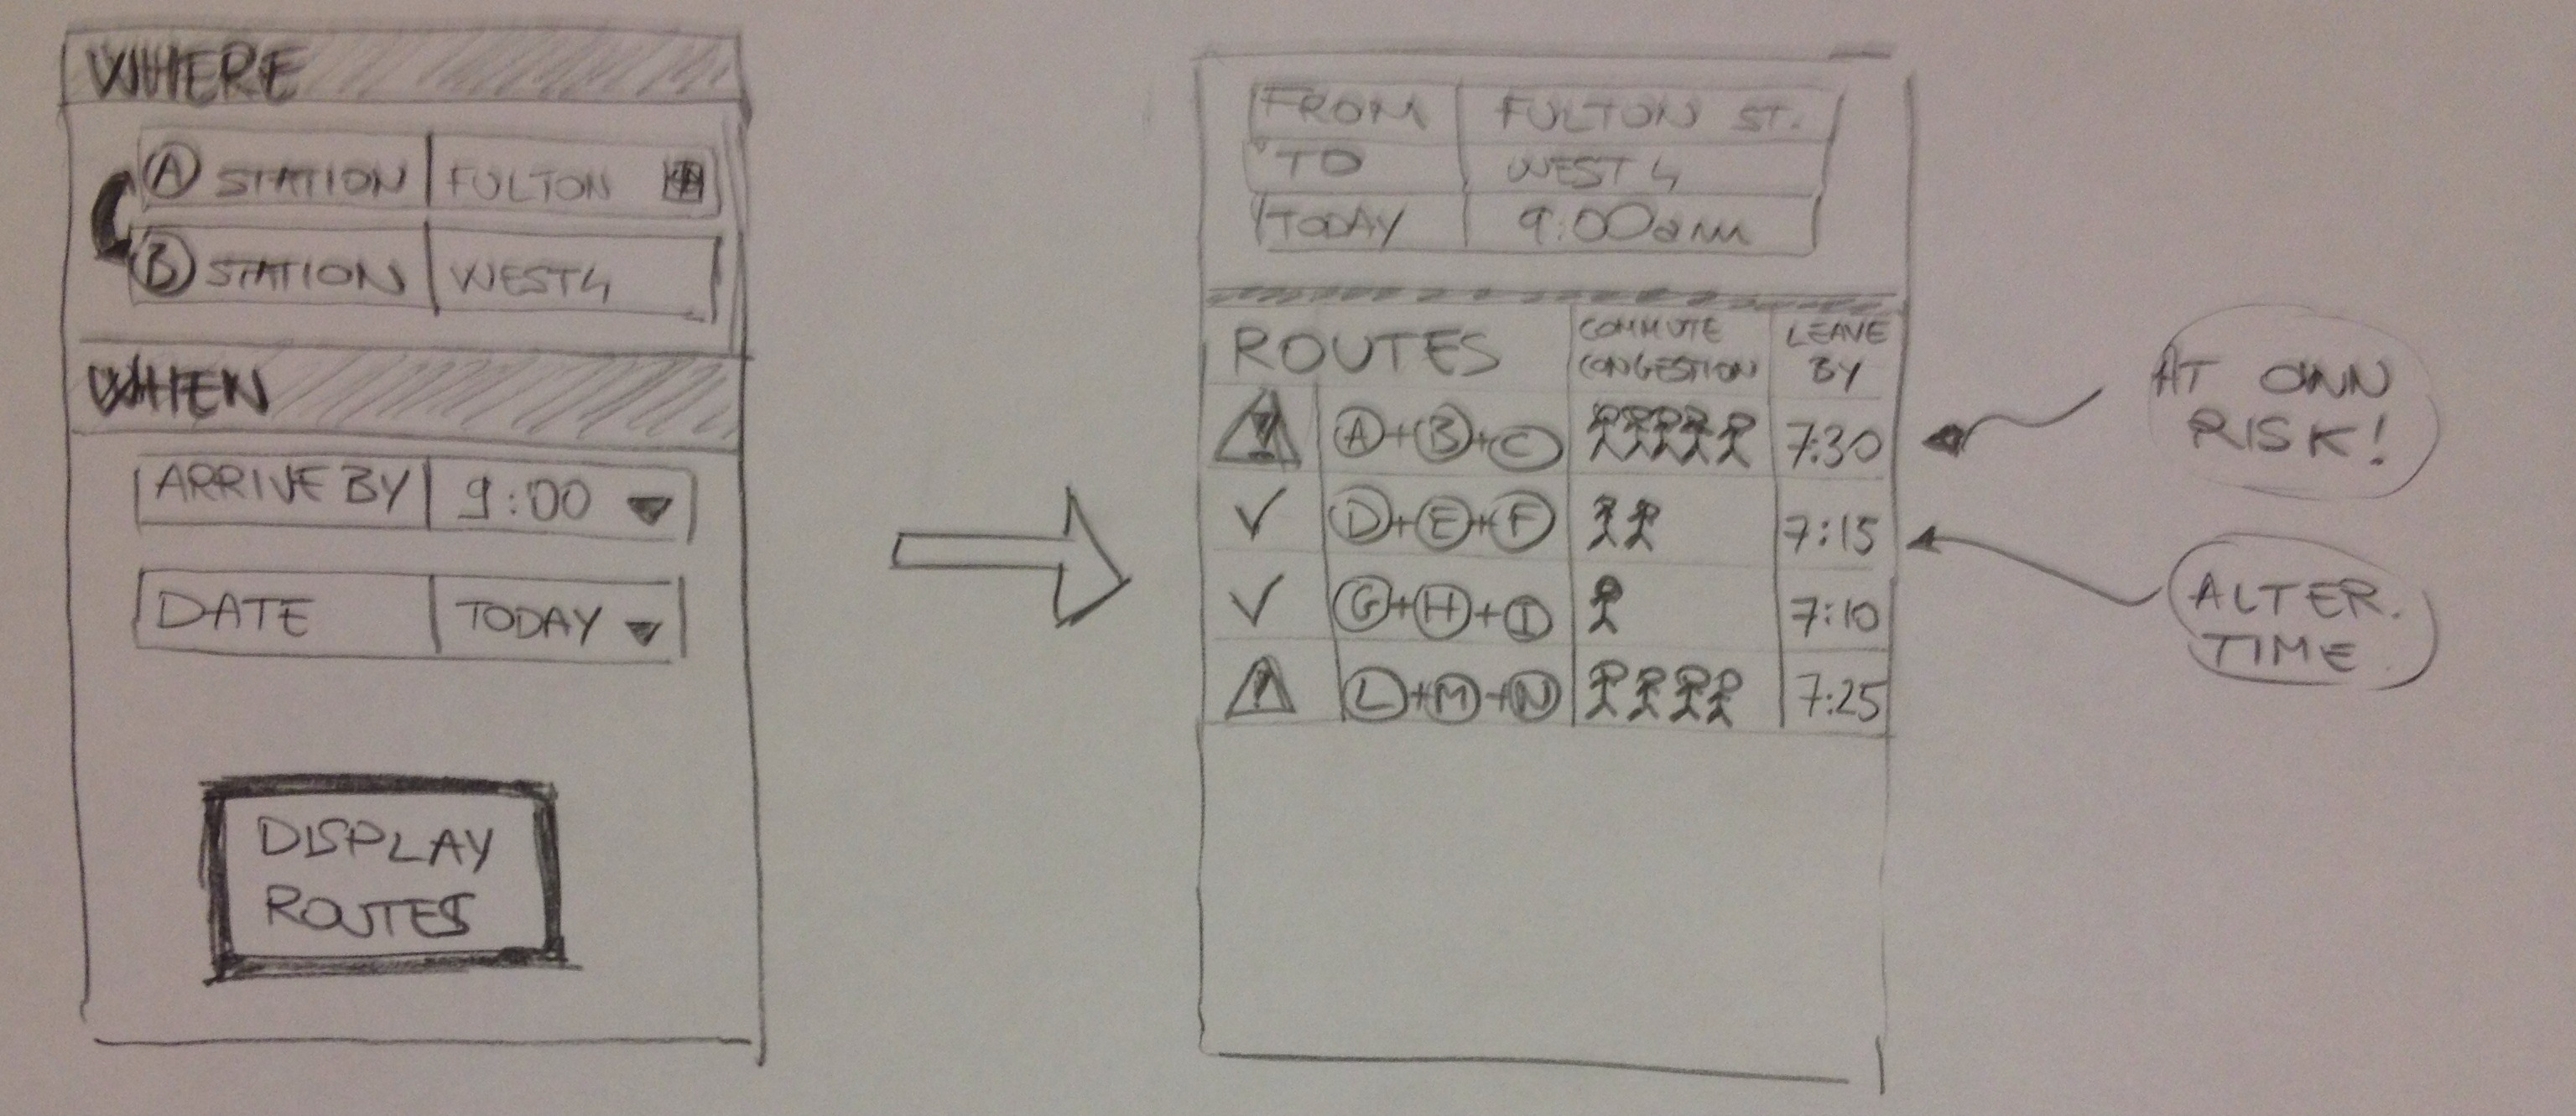 WHERE
A STATION FULTON
B STATION WEST4
WHEN
ARRIVE BY 9:00
DATE TODAY
DISPLAY
ROUTES
FROM FULTON ST.
TO WEST 4
TODAY 9:00am
ROUTES COMMUTE CONGESTION LEAVE BY
! A+B+C 7:30
D+E+F 7:15
G+H+I 7:10
! L+M+N 7:25
AT OWN
RISK!
ALTER.
TIME